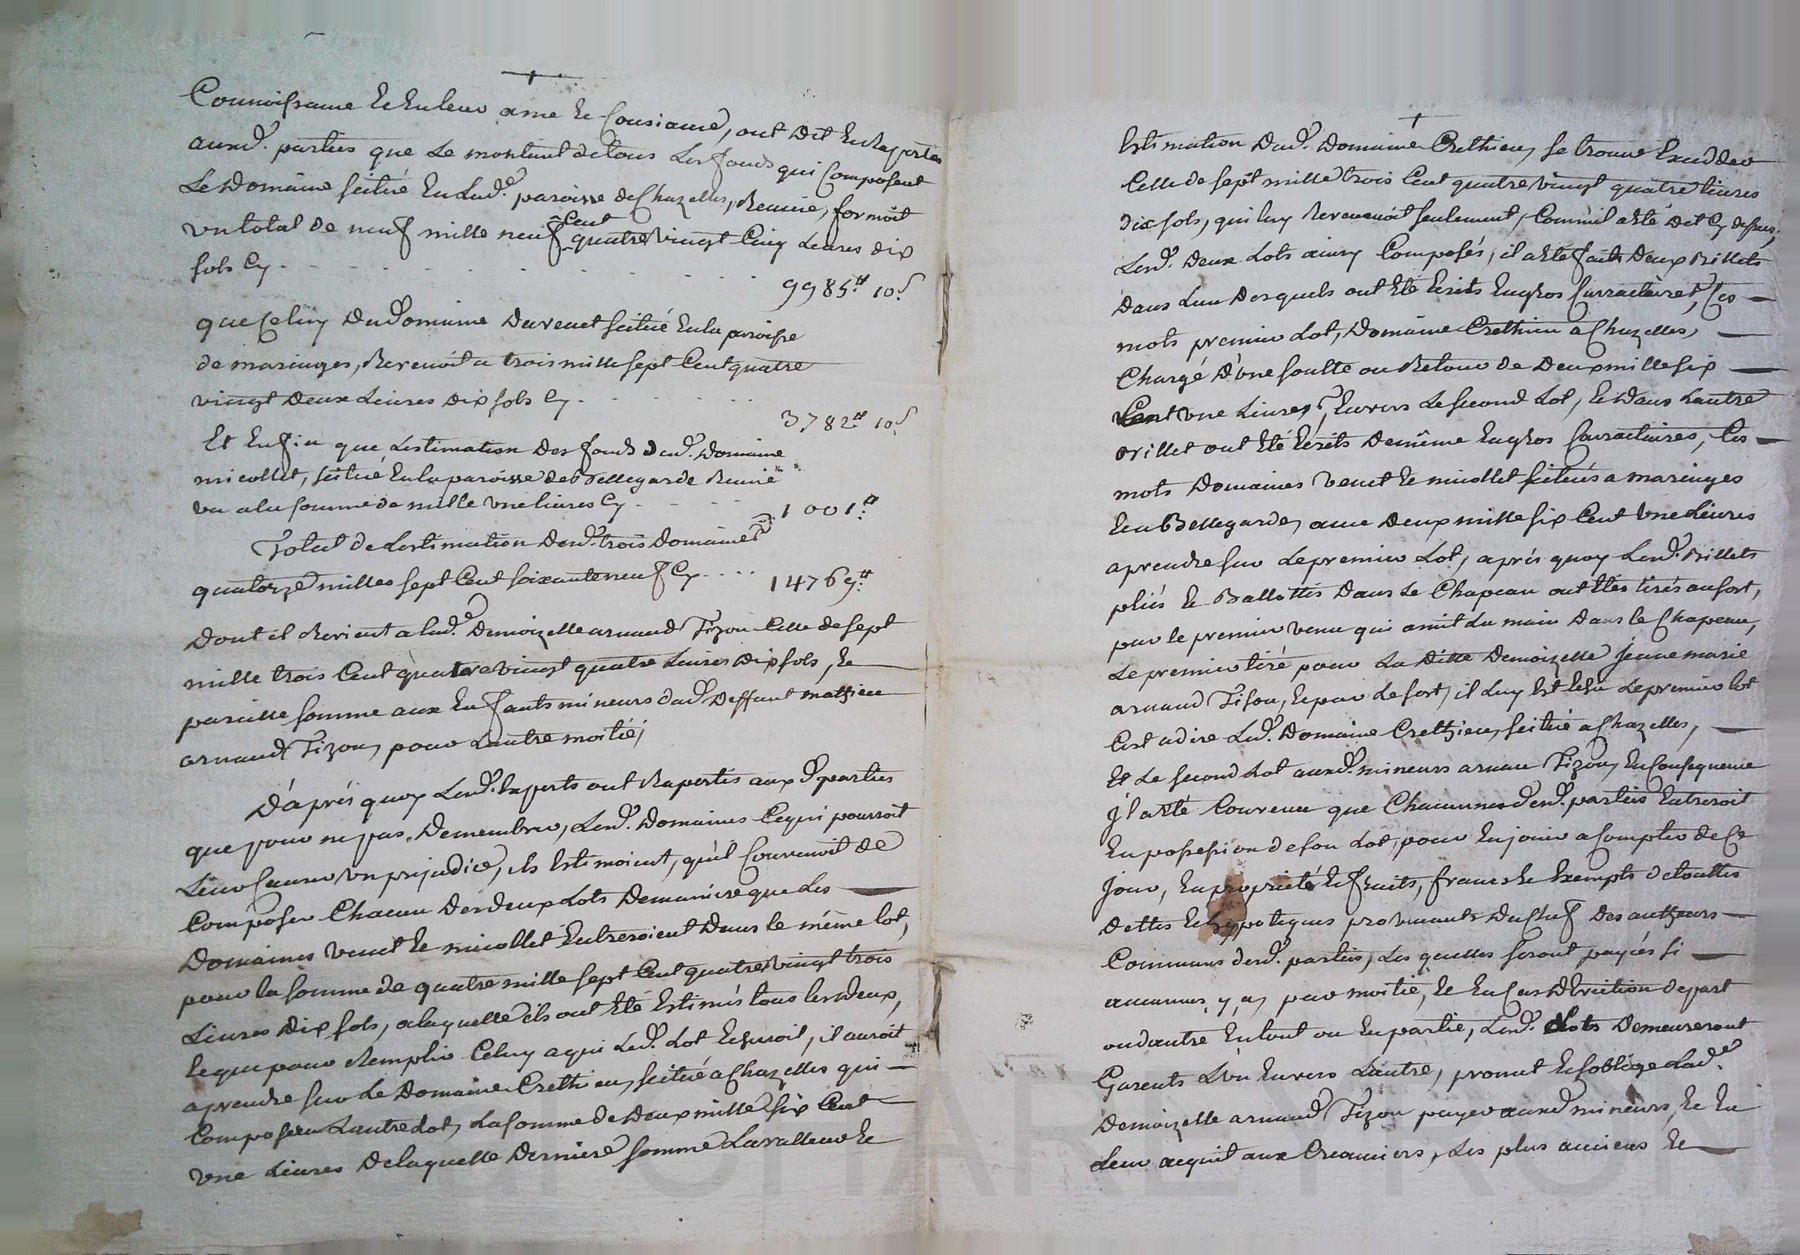 Connoissance et en leur ame et Consiance, ont dit et Raporté
auxd. parties que Le montant de tous Les fonds qui Composent
Le Domaine scitué En Lad.e paroisse de Chazelles, Reunie, formoit
un total de neuf mille neuf Cent quatre vingt Cinq Livres dix
sols Cy . . . . . . 9985.# 10.s
que Celuy Du Domaine Du venet scitué En la paroisse
de maringes, Revenoit a trois mille sept Cent quatre
vingt Deux Livres Dix sols Cy . . . . 3782.# 10.s
Et Enfin que Lestimation Des fonds dud. Domaine
micollet, scitué En la paroisse de Bellegarde Reunie
va a la somme de mille une livres Cy . . . 1001.#
Total de Lestimation Desd. trois Domaines
quatorze milles sept Cent soixante neuf Cy . . . 14769.#
Dont il Revient a lad.e Demoizelle arnaud Tizon Celle de sept
mille trois Cent quatre vingt quatre Livres Dix sols, Et
pareille somme aux Enfants mineurs dud. Deffunt mathieu
arnaud Tizon, pour Lautre moitié,
D'aprés quoy Lesd. Experts ont Raportés aux d. parties
que pour ne pas Demembrer, Lesd. Domaines Ce qui pourroit
Leur Causer un prejudice, ils Estimoient, qu'il Convenoit de
Composer Chacun Des deux Lots De maniere que Les
Domaines venet Et micollet Entreroient Dans le même lot,
pour la somme de quatre mille sept Cent quatre vingt trois
Livres Dix sols, a laquelle ils ont Eté Estimés tous les deux,
Et que pour Remplir Celuy a qui Led. Lot Echeroit, il auroit
a prendre sur Le Domaine Crethieu, scitué a Chazelles qui
Composera Lautre Lot, La somme de Deux mille six Cent
une Livres De laquelle Derniere somme La valleur Et
Estimation Dud. Domaine Crethieu, se trouve Exceder
Celle de sept mille trois Cent quatre vingt quatre livres
dix sols, qui luy Revenoit seulement, Comm'il a Eté Dit Cy dessus,
Lesd. Deux Lots ainsy Composés, il a Eté fait Deux Billets
Dans Lun Desquels ont Eté Ecrits En gros Carracteres, Ces
mots premier Lot, Domaine Crethieu a Chazelles,
Chargé D'une soulte ou Retour de Deux mille six
Cent une Livres, Envers Le second Lot, Et Dans Lautre
Billet ont Eté Ecrits De même En gros Carracteires, Ces
mots Domaines venet Et micollet scitués a maringes
Et a Bellegarde, avec Deux mille six Cent une Livres
a prendre sur Le premier Lot, aprés quoy Lesd. Billets
pliés Et Ballottés Dans Le Chapeau ont Etés tirés au sort,
par le premier venu qui a mit La main Dans le Chapeau,
Le premier tiré pour La Ditte Demoizelle Jeanne marie
arnaud Tison, Et par Le sort, il Luy Est Echu Le premier lot
Cest a dire Led. Domaine Crethieu, scitué a Chazelles,
Et Le second Lot auxd. mineurs arnau Tizon, En Consequence
Jl a Eté Convenu que Chacunnes desd. parties Entreroit
En possession de son Lot, pour En jouir a Compter de Ce
Jour, En proprieté Et fruits, francs Et Exempts de touttes
Dettes Et hypoteques provenants Du Chef Des autheurs
Communs desd. parties, Les quelles seront payées si
aucunnes y a, par moitié, Et En Cas D'Eviction de part
ou d'autre En tout ou En partie, Lesd. Lots Demeureront
Garents L'un Envers Lautre, promet Et soblige Lad.e
Demoizelle arnaud Tizon payer auxd. mineurs, Et En
Leur acquit aux Creanciers, Les plus anciens Et